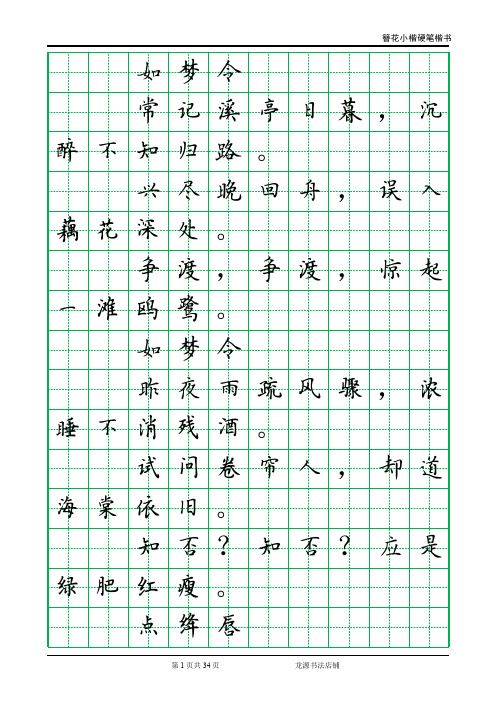 簪花小楷硬笔楷书
如梦令
常记溪亭日暮，沉
醉不知归路。
兴尽晚回舟，误入
藕花深处。
争渡，争渡，惊起
一滩鸥鹭。
如梦令
昨夜雨疏风骤，浓
睡不消残酒。
试问卷帘人，却道
海棠依旧。
知否？知否？应是
绿肥红瘦。
点绛唇
第 1 页共 34 页 龙源书法店铺